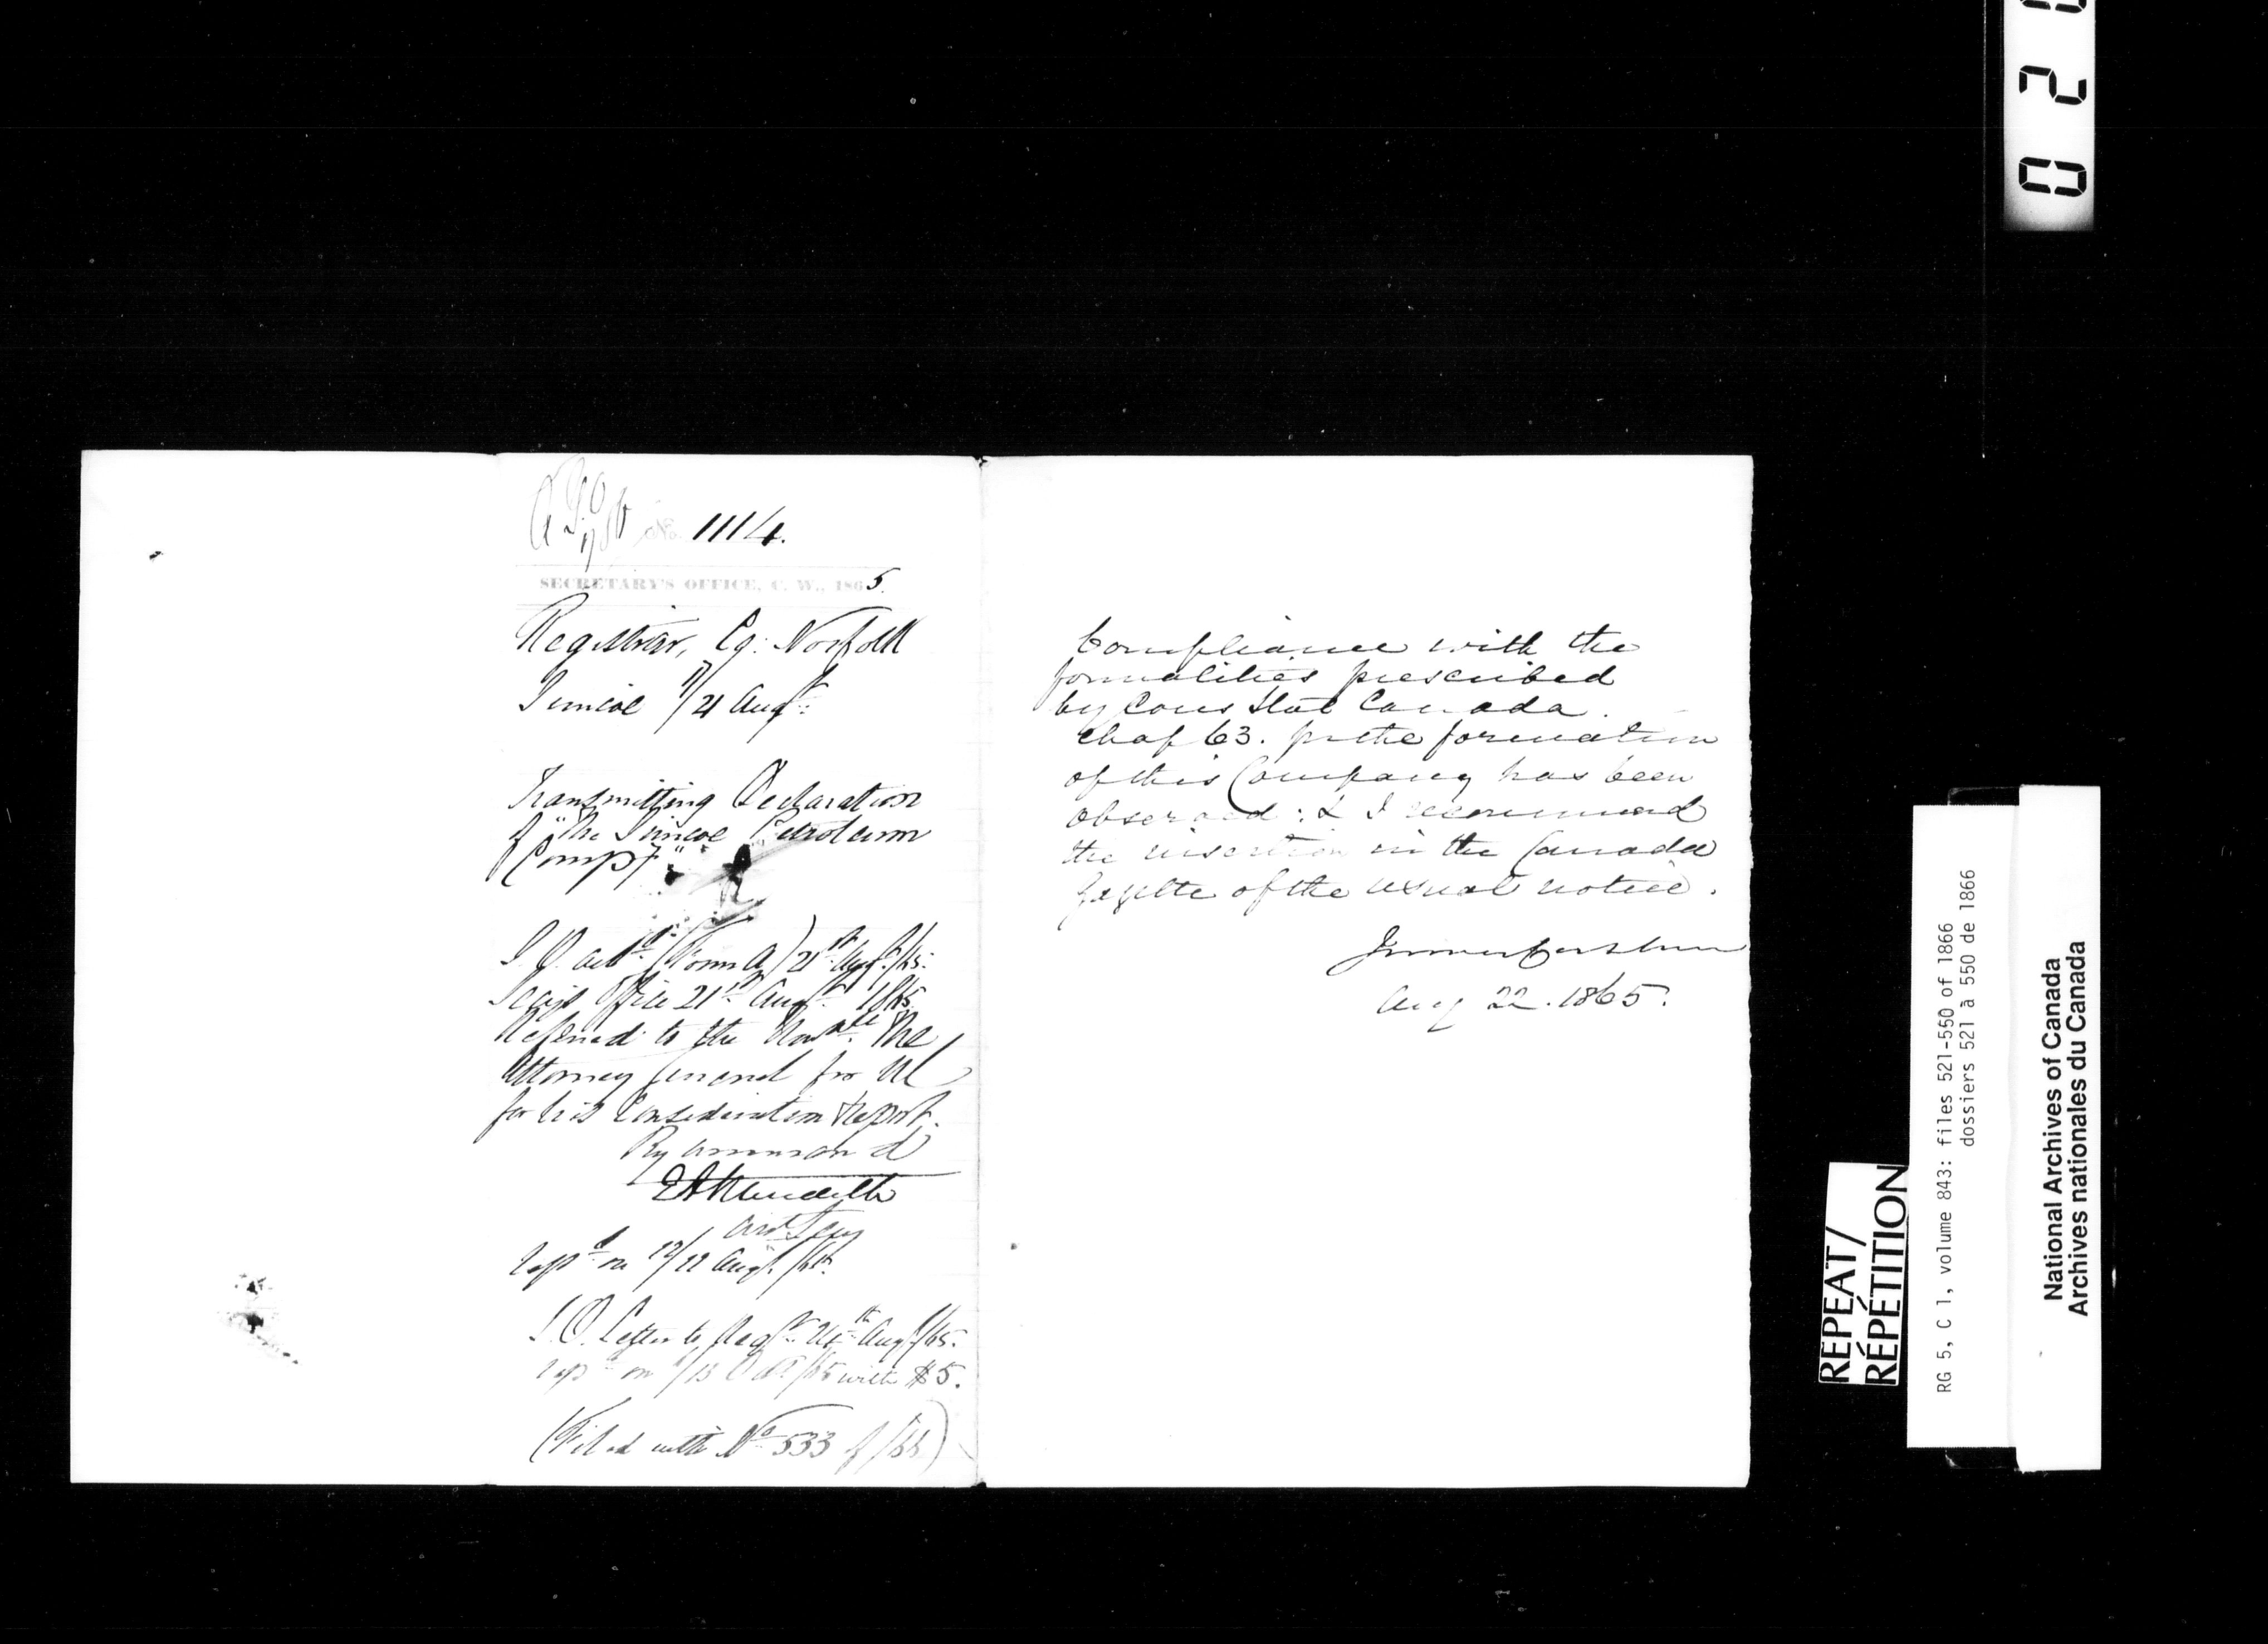 No. 1114.
SECRETARY'S OFFICE, C. W., 1865.
Registrar, Co: Norfolk
Simcoe 17/21 Augt
Transmitting Declaration
of "The Simcoe Petroleum
Compy"
(Form A) 21st Augt /65.
Secys Office 21st Augt 1865
Referred to the Honble The
Attorney General for UC
for his Consideration & Report.
By Command
EAMeredith
Asst Secy
on 22 Augt /65.
Letter to Regr 24th Augt /65.
on with $5.
(Filed with No 533 of /66)
Compliance with the
formalities prescribed
by Cons Stat Canada.
chap 63. for the formation
of this Company has been
observed: & I recommend
the insertion in the Canada
Gazette of the usual notice.
Aug 22. 1865.
0 2
REPEAT/
RÉPÉTITION
RG 5, C 1, volume 843: files 521-550 of 1866
dossiers 521 à 550 de 1866
National Archives of Canada
Archives nationales du Canada